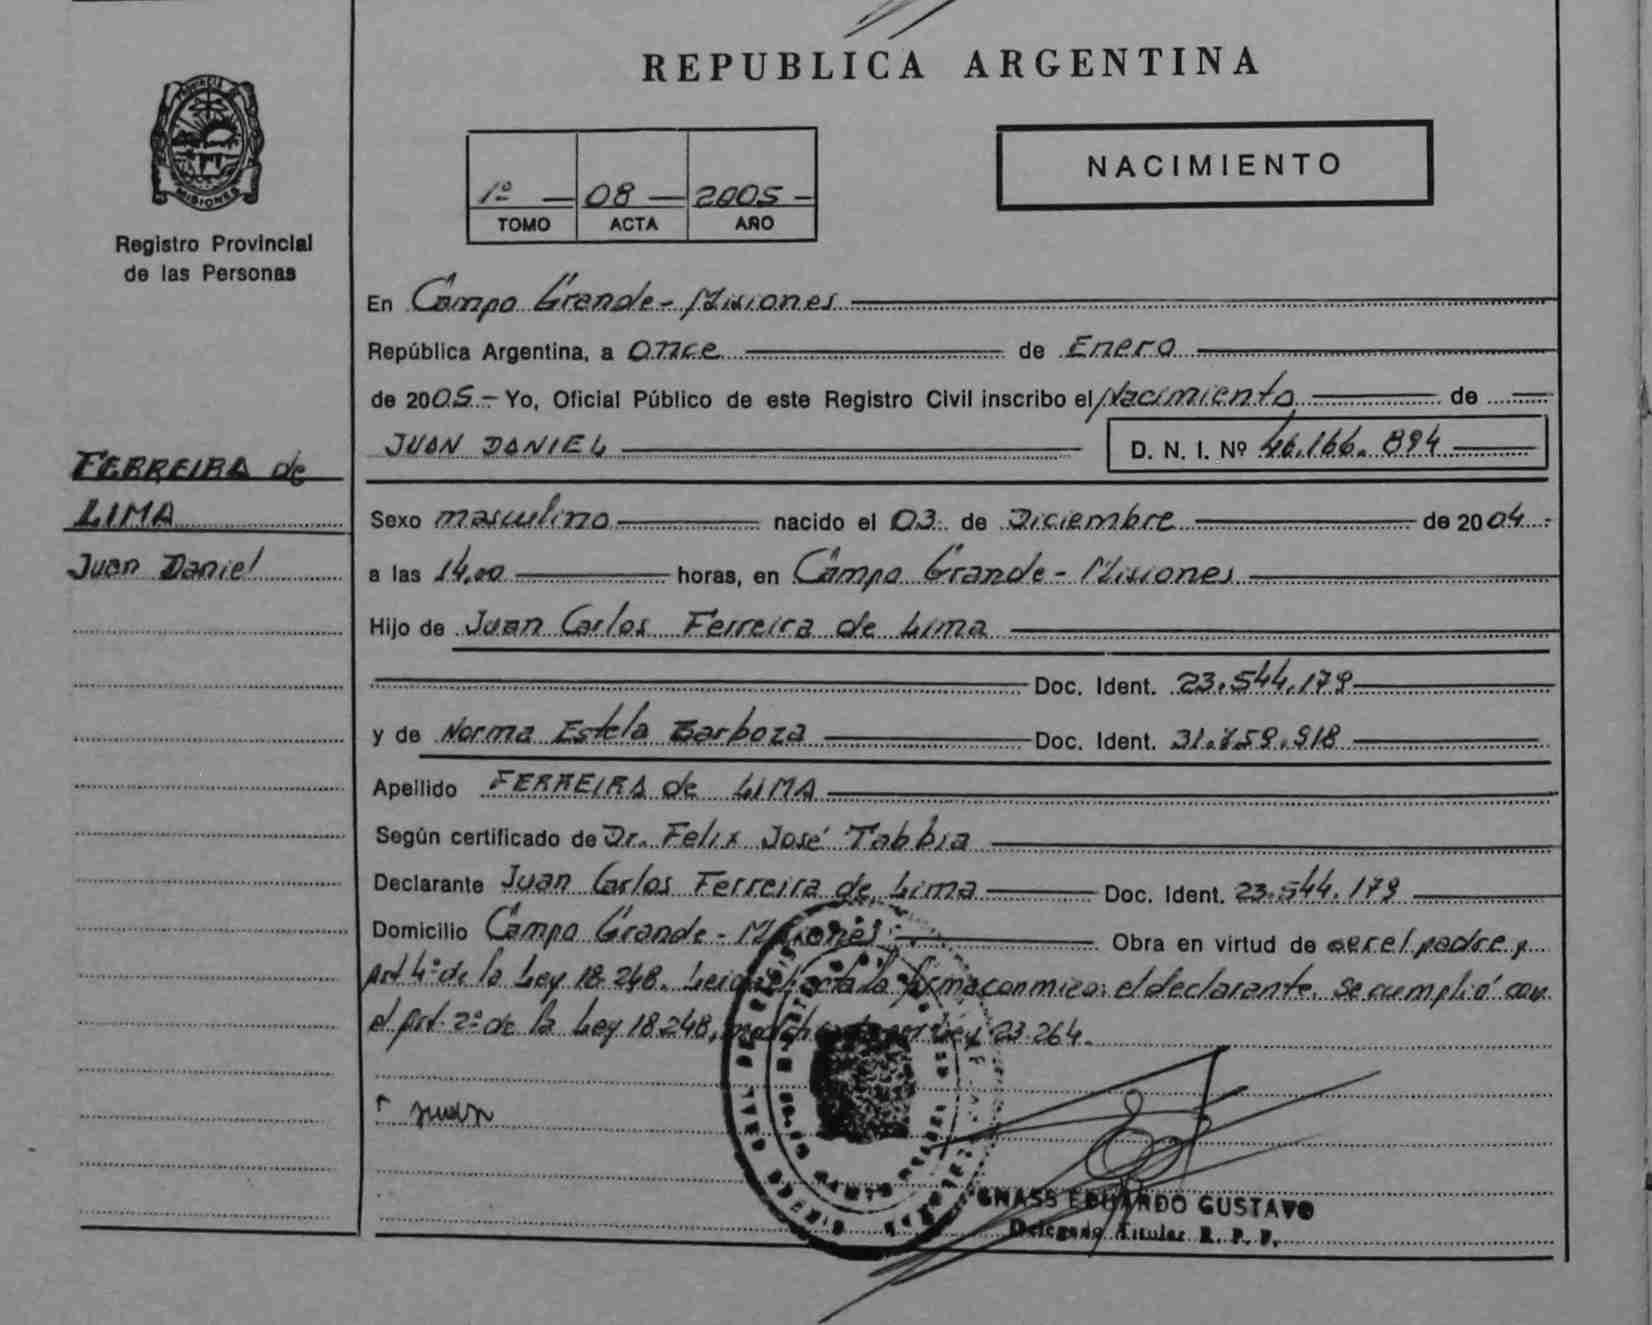 REPUBLICA ARGENTINA
PROVINCIA DE
MISIONES
Registro Provincial
de las Personas
1º — 08 — 2005 —
TOMO ACTA AÑO
NACIMIENTO
En Campo Grande - Misiones
República Argentina, a once de Enero
de 2005.- Yo, Oficial Público de este Registro Civil inscribo el Nacimiento de
JUAN DANIEL D. N. I. Nº 46.166.894
FERREIRA de
LIMA
Juan Daniel
Sexo masculino nacido el 03 de Diciembre de 2004.-
a las 14,00 horas, en Campo Grande - Misiones
Hijo de Juan Carlos Ferreira de Lima
Doc. Ident. 23.544.179
y de Norma Estela Barboza Doc. Ident. 31.859.918
Apellido FERREIRA de LIMA
Según certificado de Dr. Felix José Tabbia
Declarante Juan Carlos Ferreira de Lima Doc. Ident. 23.544.179
Domicilio Campo Grande - Misiones Obra en virtud de ser el padre y
art 4º de la Ley 18.248. Leida el acta la firma conmigo: el declarante. Se cumplió con
el art. 2º de la Ley 18.248, Ley 23.264.
GNASS EDUARDO GUSTAVO
Delegado Titular R. P. P.